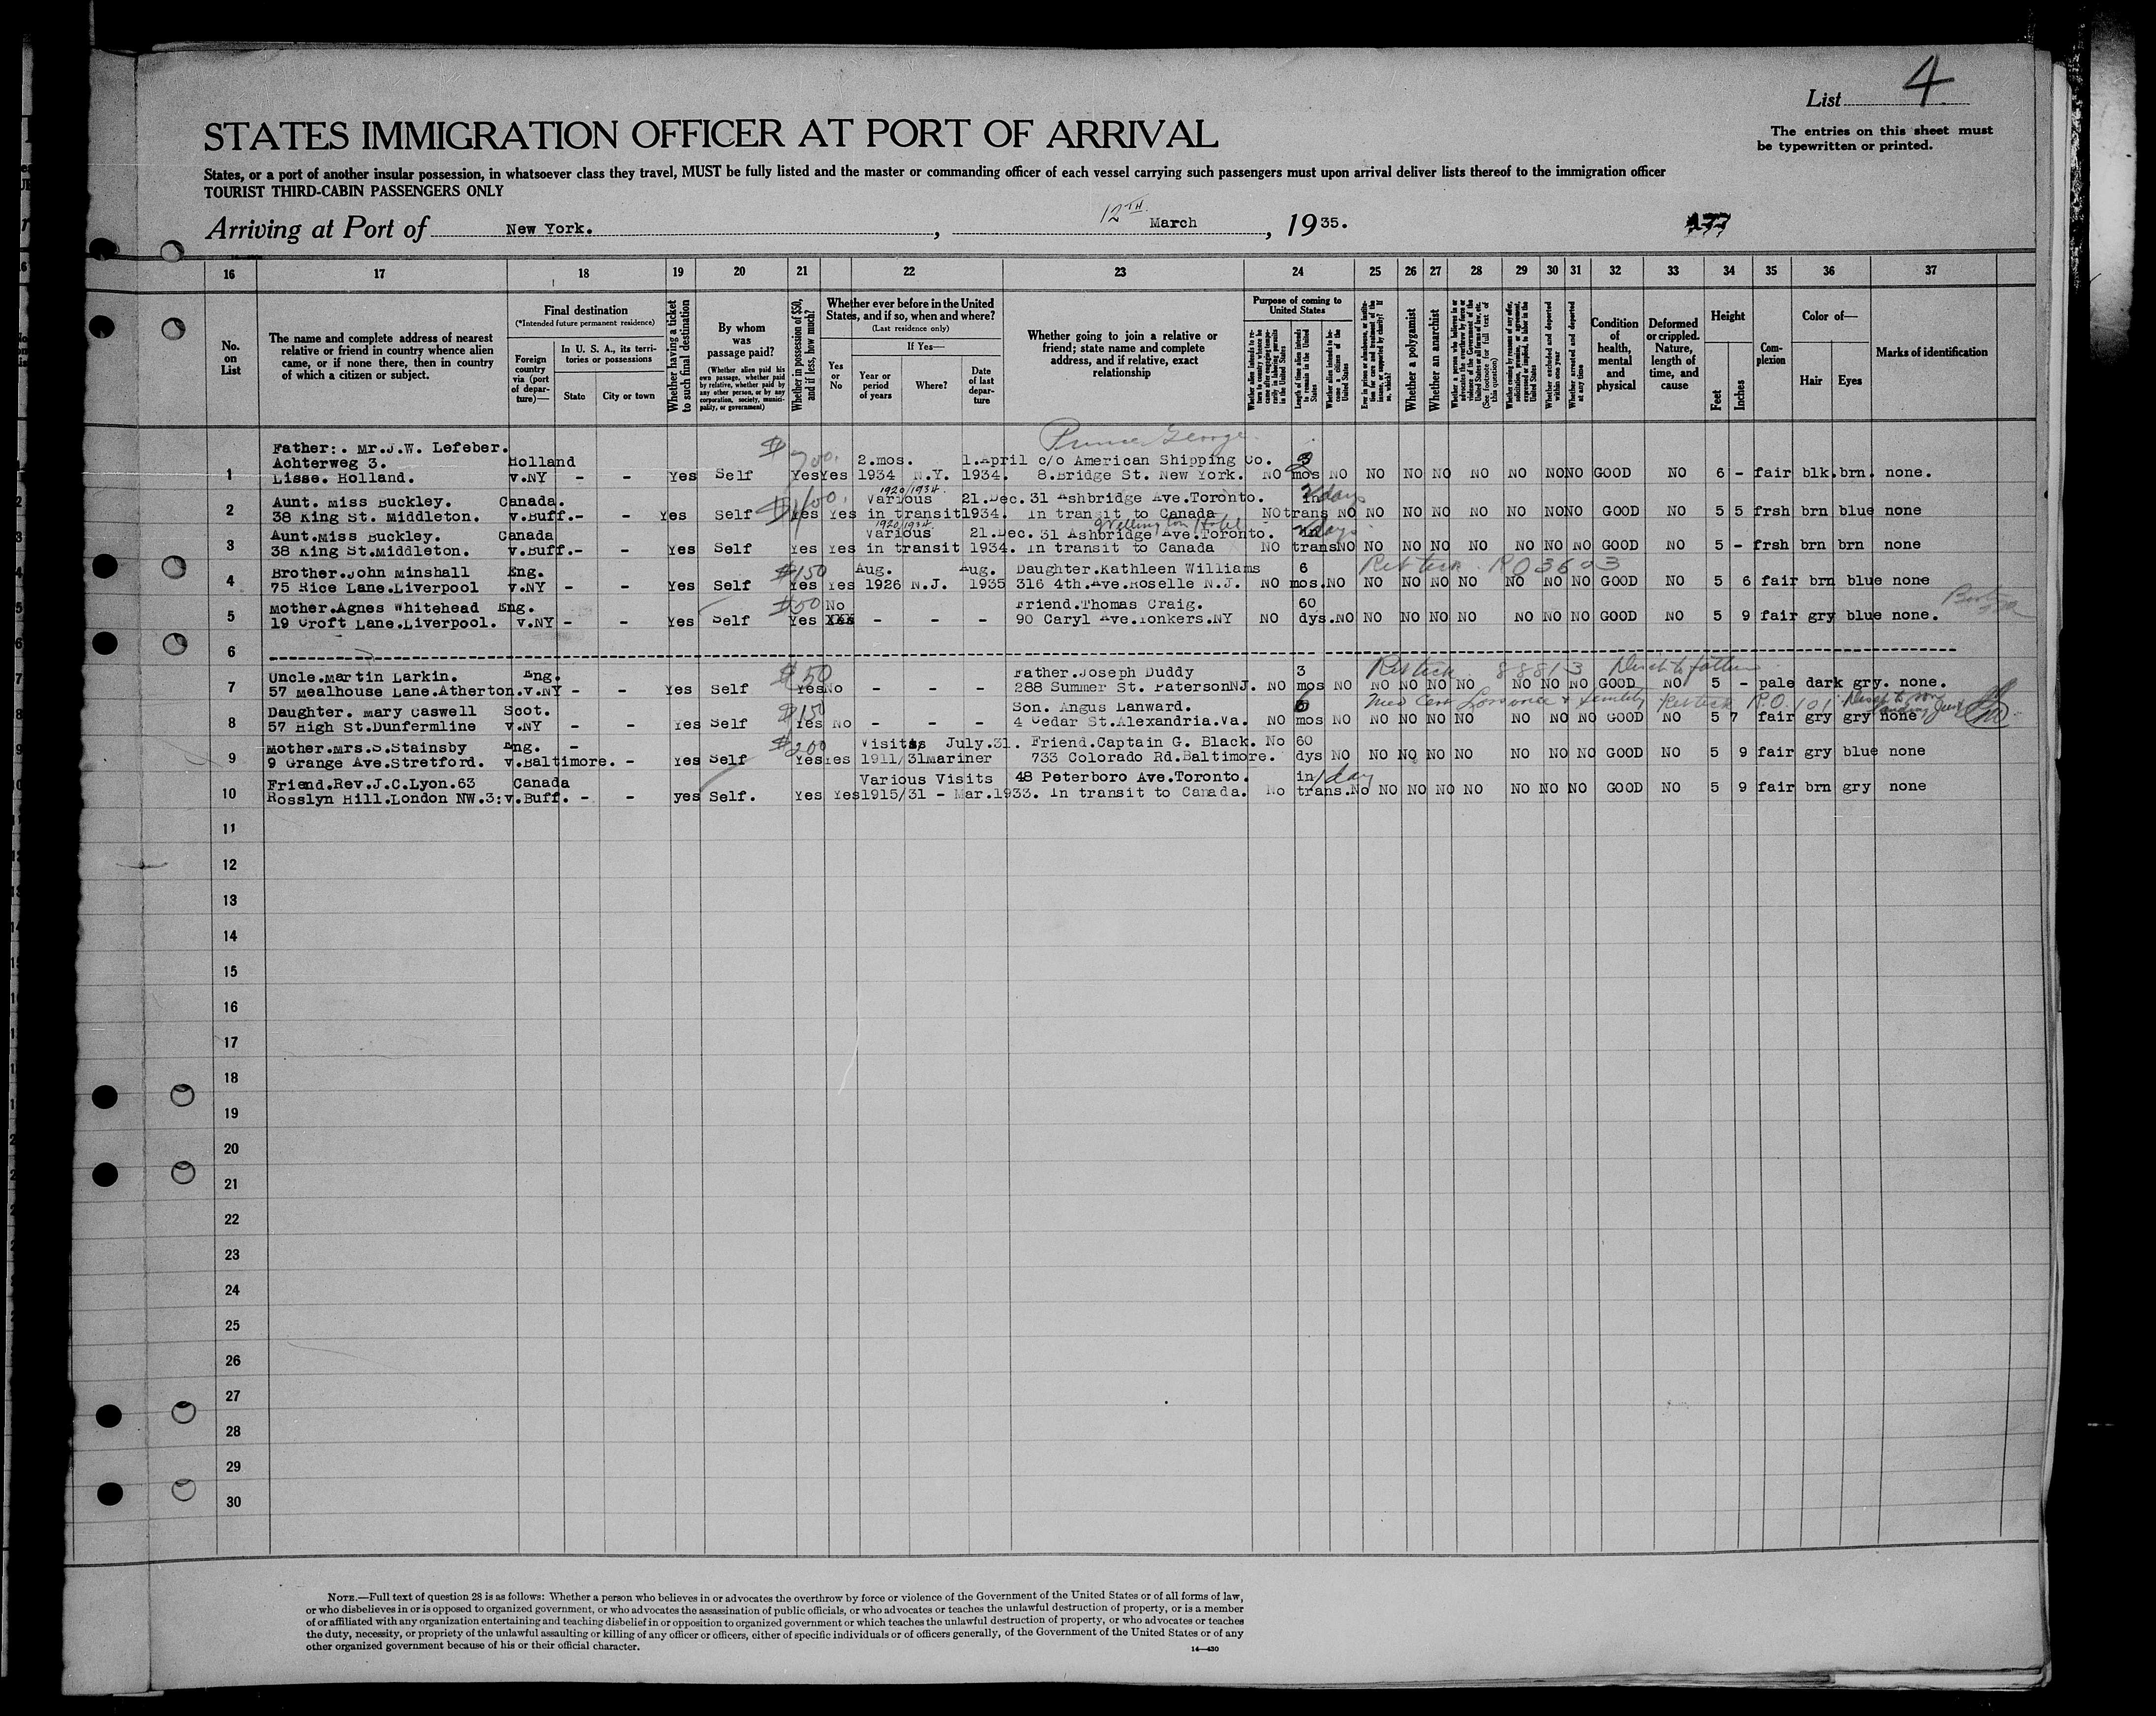 List 4
STATES IMMIGRATION OFFICER AT PORT OF ARRIVAL
The entries on this sheet must
be typewritten or printed.
States, or a port of another insular possession, in whatsoever class they travel, MUST be fully listed and the master or commanding officer of each vessel carrying such passengers must upon arrival deliver lists thereof to the immigration officer
TOURIST THIRD-CABIN PASSENGERS ONLY
Arriving at Port of New York. , 12TH March , 1935.
177
16 17 18 19 20 21 22 23 24 25 26 27 28 29 30 31 32 33 34 35 36 37
No. on List
The name and complete address of nearest
relative or friend in country whence alien
came, or if none there, then in country
of which a citizen or subject.
Final destination
(*Intended future permanent residence)
Foreign country via (port of departure)—
In U. S. A., its territories or possessions
State
City or town
Whether having a ticket to such final destination
By whom was passage paid?
(Whether alien paid his own passage, whether paid by relative, whether paid by any other person, or by any corporation, society, municipality, or government)
Whether in possession of $50, and if less, how much?
Whether ever before in the United
States, and if so, when and where?
(Last residence only)
Yes or No
If Yes—
Year or period of years
Where?
Date of last departure
Whether going to join a relative or
friend; state name and complete
address, and if relative, exact
relationship
Purpose of coming to United States
Length of time alien intends to remain in the United States
Whether alien intends to become a citizen of the United States
Whether a polygamist
Whether an anarchist
Whether excluded and deported within one year
Whether arrested and deported at any time
Condition of health, mental and physical
Deformed or crippled. Nature, length of time, and cause
Height
Feet
Inches
Complexion
Color of—
Hair
Eyes
Marks of identification
Prince George
Father:. Mr.J.W. Lefeber.
Achterweg 3. Holland $700. 2.mos. 1.April c/o American Shipping Co. 3
1 Lisse. Holland. v.NY - - Yes Self Yes Yes 1934 N.Y. 1934. 8.Bridge St. New York. NO mos NO NO NO NO NO NO NO NO GOOD NO 6 - fair blk.brn. none.
1920/1934
Aunt. Miss Buckley. Canada. $100. Various 21.Dec. 31 Ashbridge Ave.Toronto. in 2 days
2 38 King St. Middleton. v.Buff.- - Yes Self Yes Yes in transit 1934. In transit to Canada NO trans NO NO NO NO NO NO NO NO GOOD NO 5 5 frsh brn blue none
1920/1934 Wellington Hotel
Aunt.Miss Buckley. Canada Various 21.Dec. 31 Ashbridge Ave.Toronto. in days
3 38 King St.Middleton. v.Buff.- - Yes Self Yes Yes in transit 1934. In transit to Canada NO trans NO NO NO NO NO NO NO NO GOOD NO 5 - frsh brn brn none
Brother.John Minshall Eng. $150 Aug. Aug. Daughter.Kathleen Williams 6 RO3603
4 75 Rice Lane.Liverpool v.NY - - Yes Self Yes Yes 1926 N.J. 1935 316 4th.Ave.Roselle N.J. NO mos.NO NO NO NO NO NO NO NO GOOD NO 5 6 fair brn blue none
Mother.Agnes Whitehead Eng. $50 No Friend.Thomas Craig. 60
5 19 Croft Lane.Liverpool. v.NY - - Yes Self Yes - - - 90 Caryl Ave.Yonkers.NY NO dys.NO NO NO NO NO NO NO NO GOOD NO 5 9 fair gry blue none.
6
Uncle.Martin Larkin. Eng. $50 Father.Joseph Duddy 3 88813 Disch to father
7 57 Mealhouse Lane.Atherton.v.NY - - Yes Self Yes No - - - 288 Summer St. PatersonNJ. NO mos NO NO NO NO NO NO NO NO GOOD NO 5 - pale dark gry. none.
Daughter. Mary Caswell Scot. $15 Son. Angus Lanward. 6 Med Cert & Senility R.O. 101 Disch to son
8 57 High St.Dunfermline v.NY - - Yes Self Yes No - - - 4 Cedar St.Alexandria.Va. NO mos NO NO NO NO NO NO NO NO GOOD NO 5 7 fair gry gry none
Mother.Mrs.S.Stainsby Eng. - $200 Visits July.31. Friend.Captain G. Black. No 60
9 9 Grange Ave.Stretford. v.Baltimore. - Yes Self Yes Yes 1911/31 Mariner 733 Colorado Rd.Baltimore. dys NO NO NO NO NO NO NO NO GOOD NO 5 9 fair gry blue none
Friend.Rev.J.C.Lyon.63 Canada Various Visits 48 Peterboro Ave.Toronto. in 1 day
10 Rosslyn Hill.London NW.3: v.Buff. - - yes Self. Yes Yes 1915/31 - Mar.1933. In transit to Canada. No trans.No NO NO NO NO NO NO NO GOOD NO 5 9 fair brn gry none
11
12
13
14
15
16
17
18
19
20
21
22
23
24
25
26
27
28
29
30
NOTE.—Full text of question 28 is as follows: Whether a person who believes in or advocates the overthrow by force or violence of the Government of the United States or of all forms of law,
or who disbelieves in or is opposed to organized government, or who advocates the assassination of public officials, or who advocates or teaches the unlawful destruction of property, or is a member
of or affiliated with any organization entertaining and teaching disbelief in or opposition to organized government or which teaches the unlawful destruction of property, or who advocates or teaches
the duty, necessity, or propriety of the unlawful assaulting or killing of any officer or officers, either of specific individuals or of officers generally, of the Government of the United States or of any
other organized government because of his or their official character.
14—430